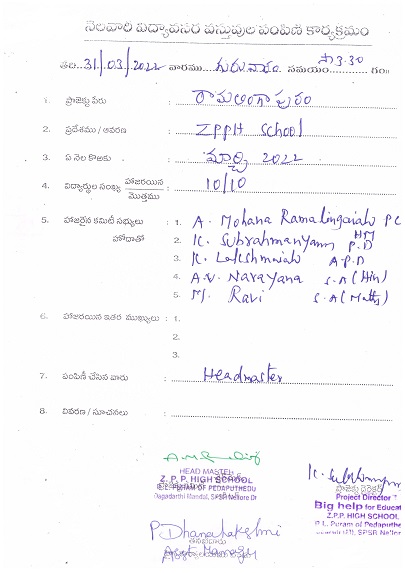 నెలవారి విద్యావసర వస్తువుల పంపిణి కార్యక్రమం
తేది 31/03/2022 వారము గురువారం సమయం సా 3.30 గం॥
1. ప్రాజెక్టు పేరు : రామలింగాపురం
2. ప్రదేశము / ఆవరణ : ZPPH School
3. ఏ నెల కొఱకు : మార్చి 2022
4. విద్యార్థుల సంఖ్య హాజరయిన / మొత్తము : 10/10
5. హాజరైన కమిటీ సభ్యులు హోదాతో : 1. A. Mohana Ramalingaiah PC
HM
2. K. Subrahmanyam P.D
3. K. Lakshmaiah A.P.D
4. A.V. Narayana S.A (Hin)
5. M. Ravi S.A (Maths)
6. హాజరయిన ఇతర ముఖ్యులు : 1.
2.
3.
7. పంపిణీ చేసిన వారు : Headmaster
8. వివరణ / సూచనలు :
HEAD MASTER
Z. P. P. HIGH SCHOOL
PURAM OF PEDAPUTHEDU
Dagadarthi Mandal, SPSR Nellore Dt
ప్రాజెక్టు డైరెక్టర్
Project Director
Big help for Educat
Z.P.P. HIGH SCHOOL,
P Dhanalakshmi
Asst Manager